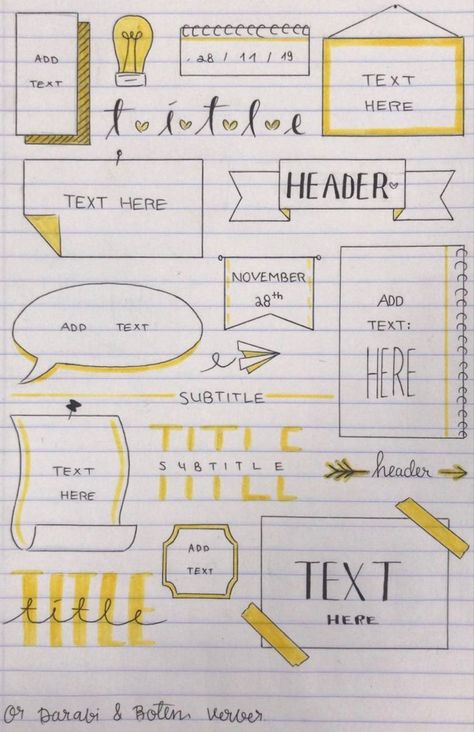 ADD
TEXT
28 / 11 / 19
title
TEXT
HERE
TEXT HERE
HEADER
NOVEMBER
28th
ADD TEXT
ADD
TEXT:
HERE
SUBTITLE
TEXT
HERE
TITLE
SUBTITLE
header
ADD
TEXT
TEXT
HERE
TITLE
title
Or Darabi & Boten Verver